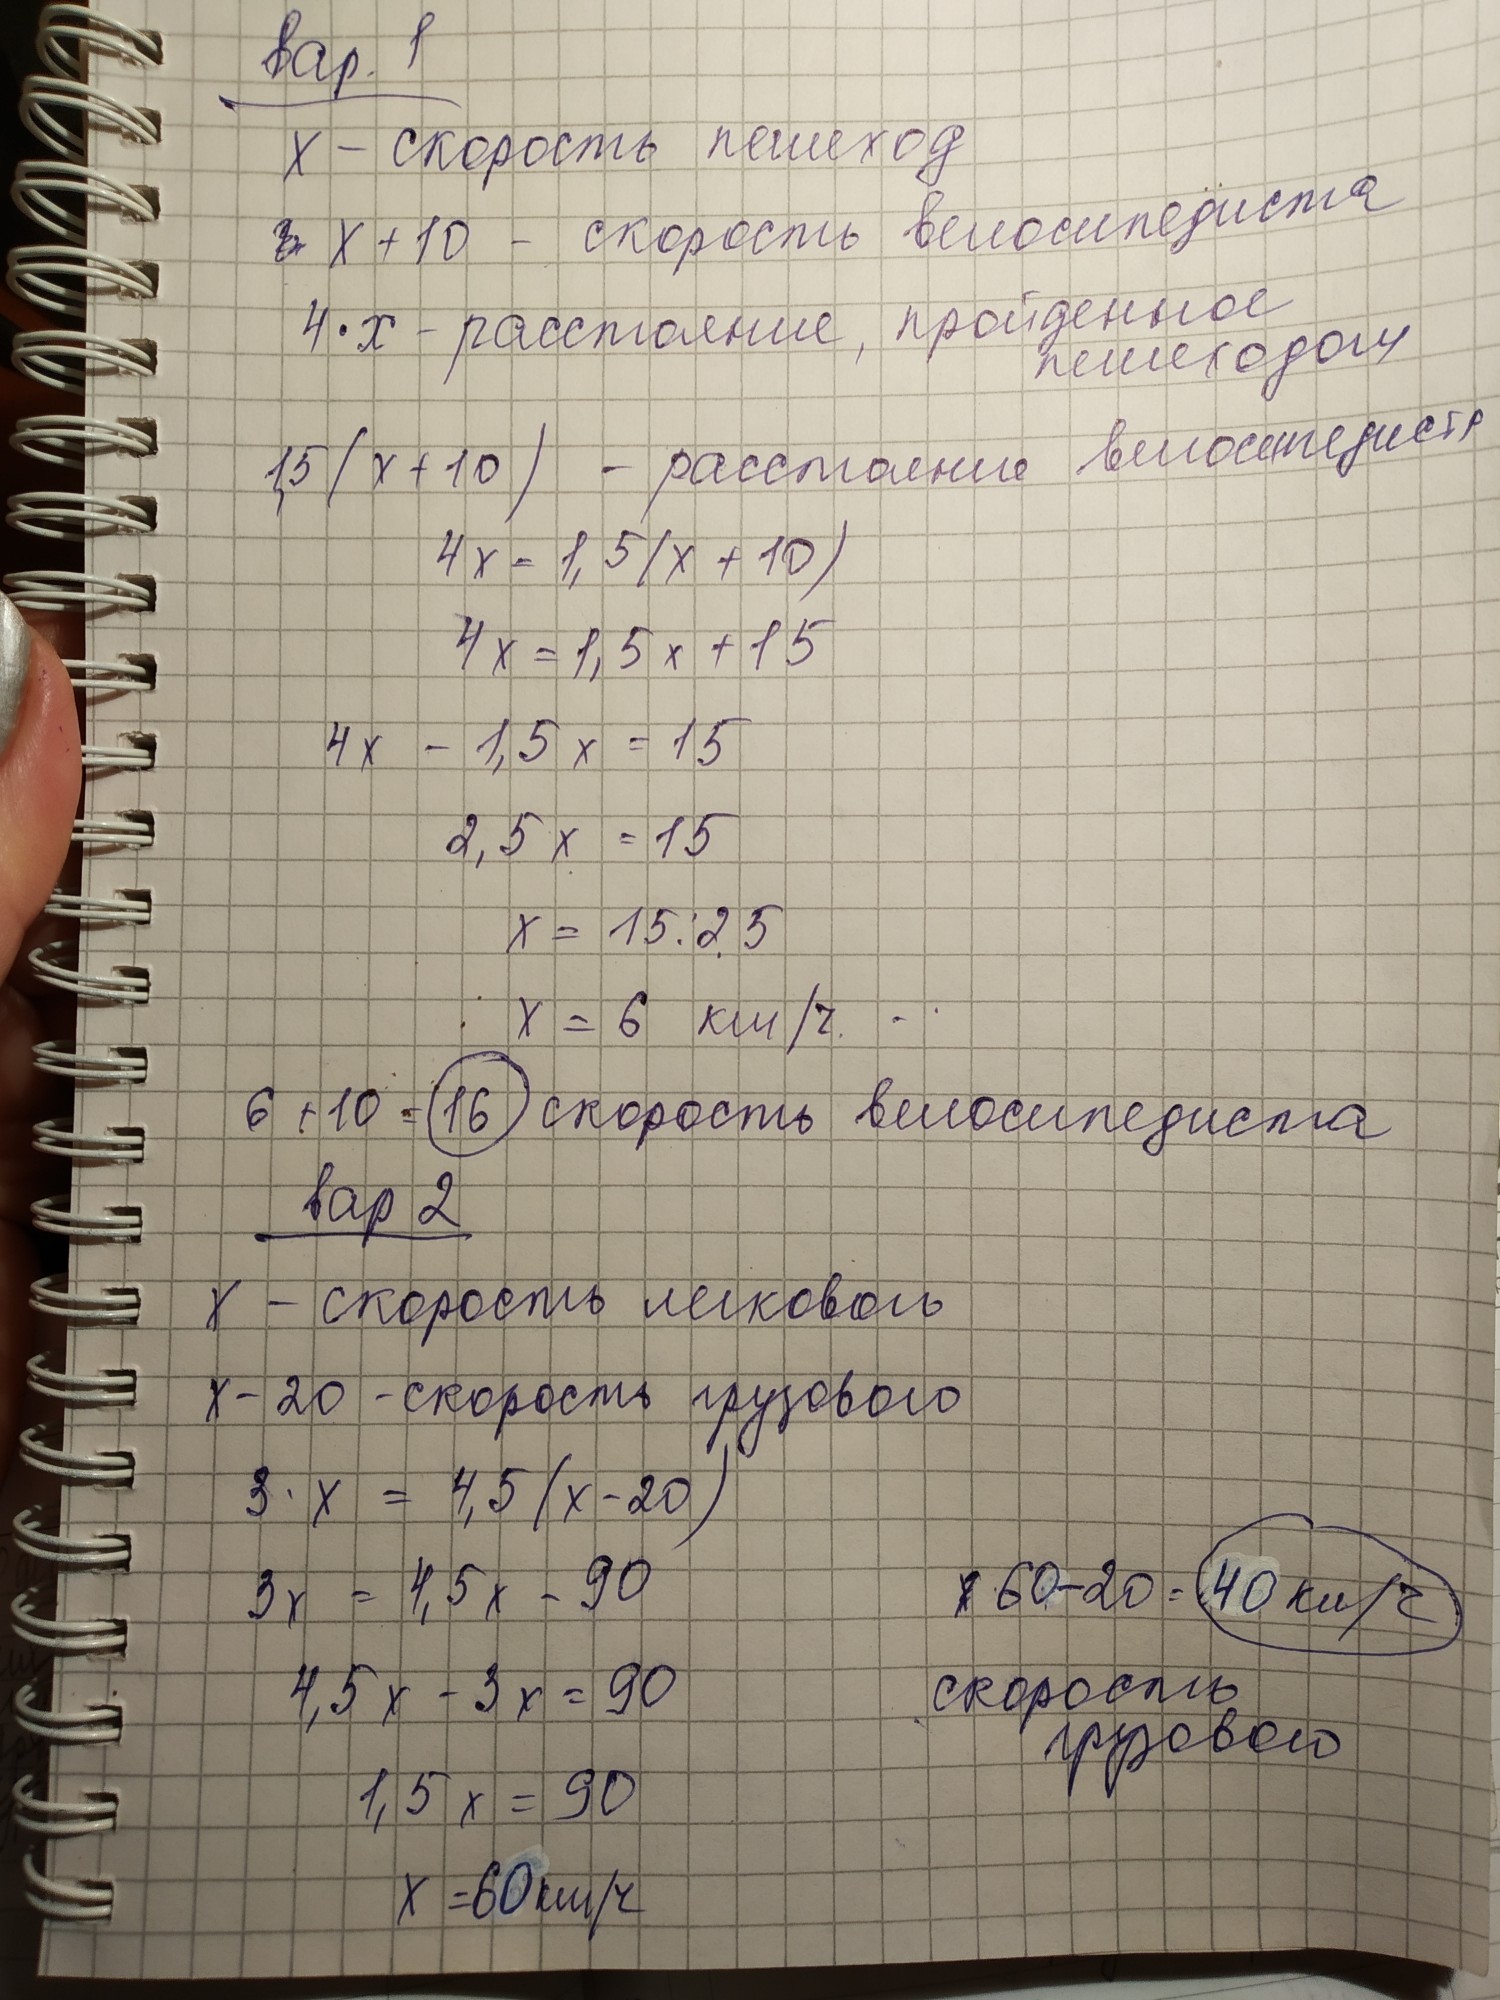 Вар. 1
х – скорость пешеход
х + 10 – скорость велосипедиста
4·х – расстояние, пройденное
пешеходом
1,5(х+10) – расстояние велосипедиста
4х = 1,5(х+10)
4х = 1,5х + 15
4х – 1,5х = 15
2,5х = 15
х = 15:2,5
х = 6 км/ч.
6 + 10 = 16 скорость велосипедиста
Вар 2
х – скорость легкового
х – 20 – скорость грузового
3·х = 4,5(х–20)
3х = 4,5х – 90
4,5х – 3х = 90
1,5х = 90
х = 60 км/ч
60–20 = 40 км/ч
скорость
грузового